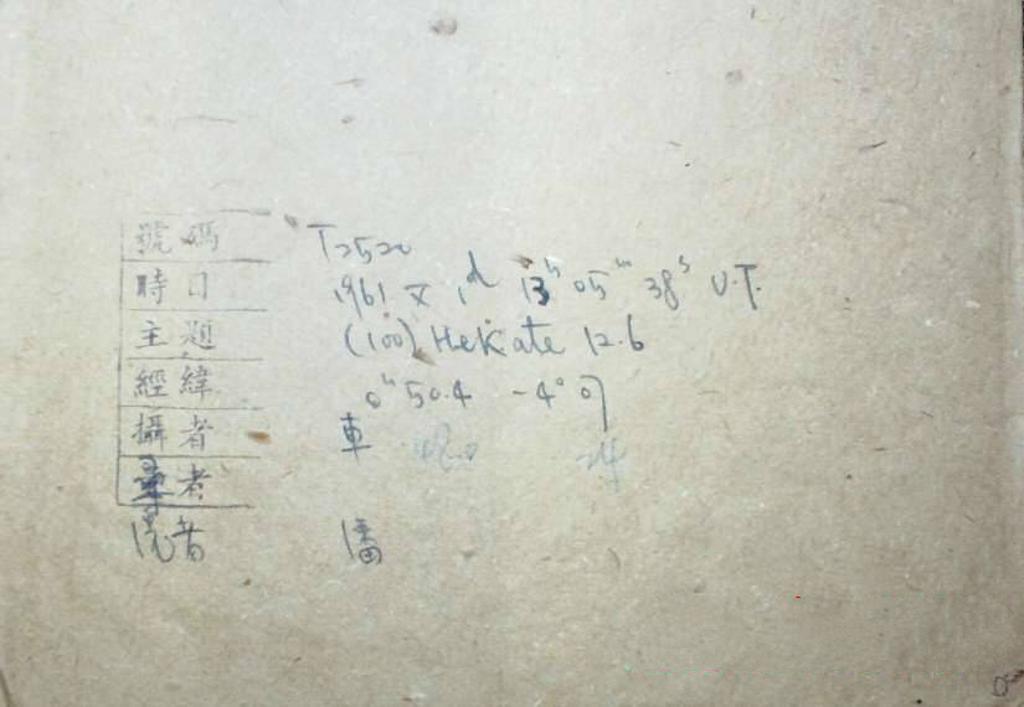 號碼 T2520
時日 1961 X 1ᵈ 13ʰ 05ᵐ 38ˢ U.T.
主題 (100) Hekate 12.6
經緯 0ʰ 50.4 -4° 07
攝者 車
者
洗者 潘